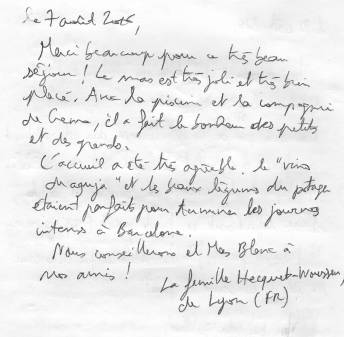 le 7 août 2016,
Merci beaucoup pour ce très beau
séjour ! Le mas est très joli et très bien
placé. Avec la piscine et la compagnie
de Crema, il a fait le bonheur des petits
et des grands.
L'accueil a été très agréable. le "vino
de aguja" et les beaux légumes du potager
étaient parfaits pour terminer les journées
intenses à Barcelone.
Nous conseillerons el Mas Blanc à
nos amis !
La famille
de Lyon (FR)